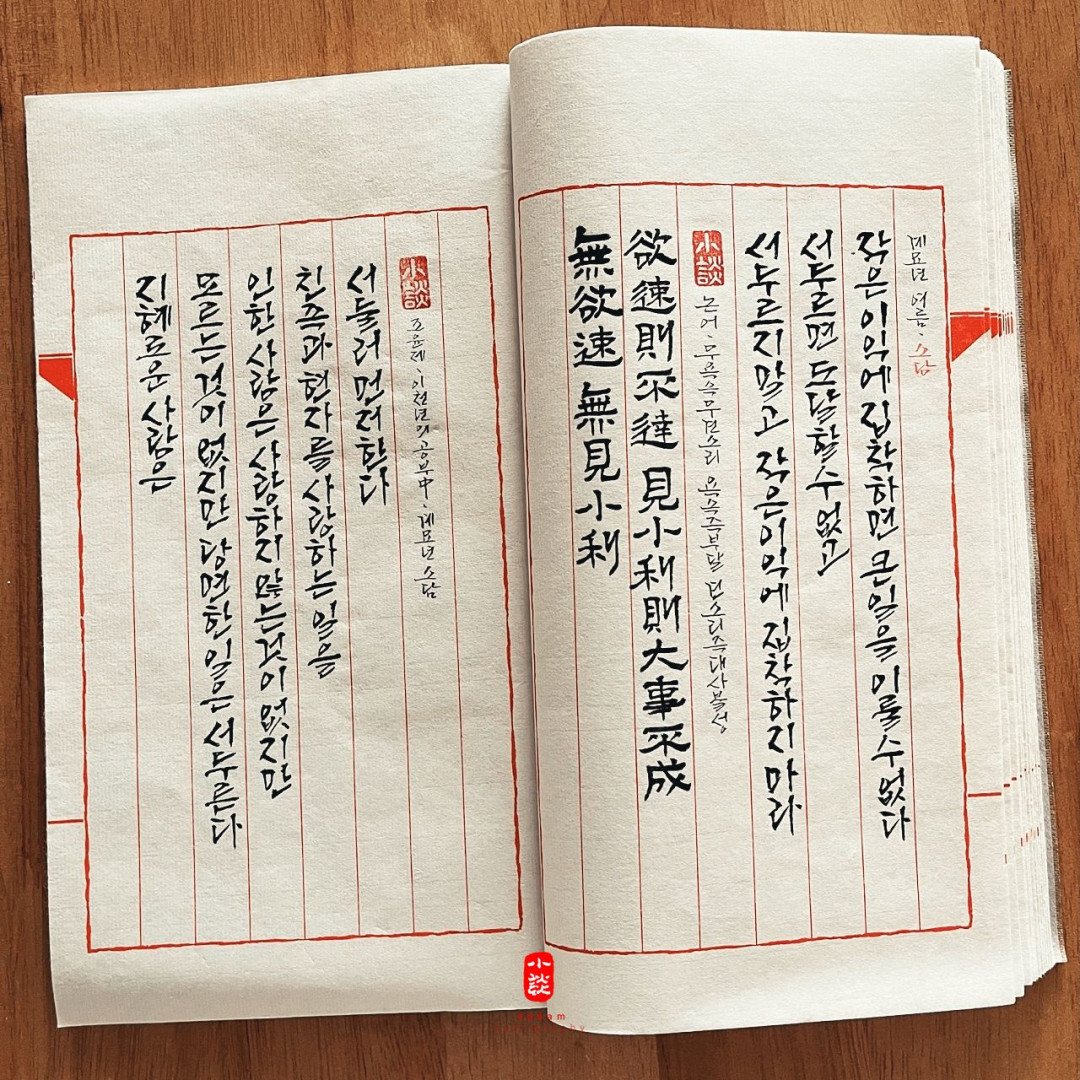 지혜로운 사람은
모르는 것이 없지만 당면한 일은 서두른다
인한 사람은 사랑하지 않는 것이 없지만
친족과 현자를 사랑하는 일을
서둘러 먼저 한다
小談 조윤제, 이천년의 공부 中, 계묘년 소담
無欲速 無見小利
欲速則不達 見小利則大事不成
小談 논어, 무욕속무견소리 욕속즉부달 견소리즉대사불성
서두르지 말고 작은 이익에 집착하지 마라
서두르면 도달할 수 없고
작은 이익에 집착하면 큰 일을 이룰 수 없다
계묘년 여름, 소담
小談